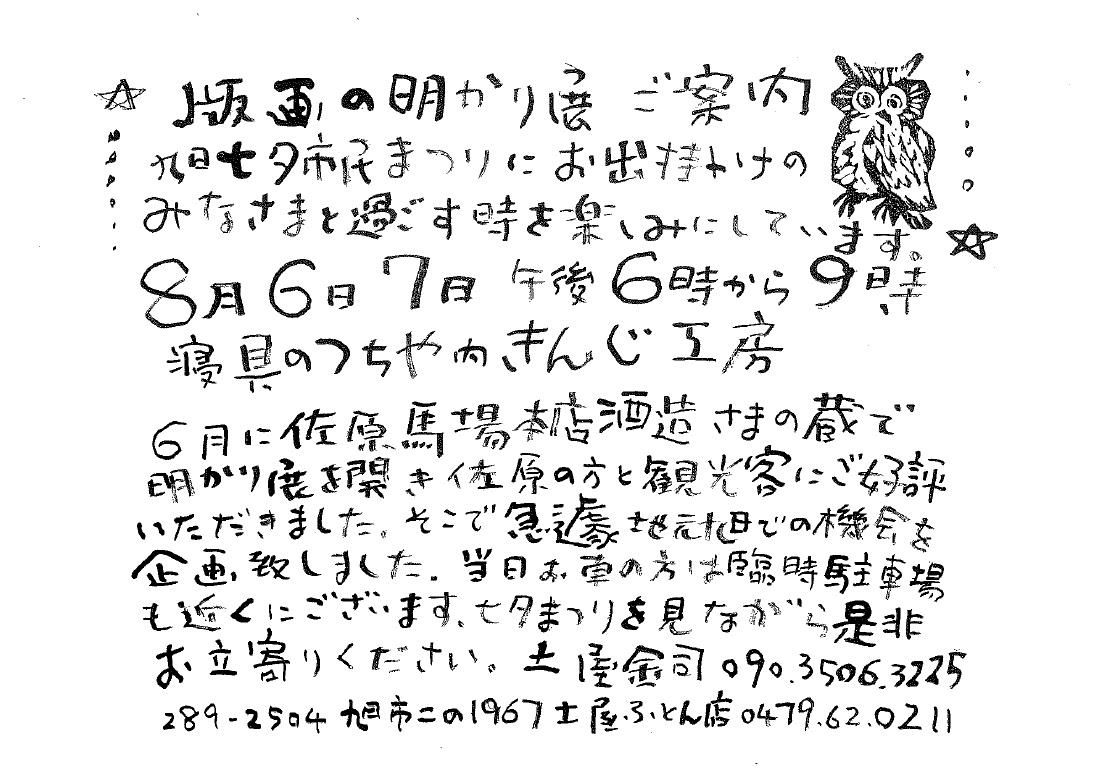 版画の明かり展 ご案内
旭七夕市民まつりにお出掛けの
みなさまと過ごす時を楽しみにしています。
8月6日7日 午後6時から9時
寝具のつちや内きんじ工房
6月に佐原馬場本店酒造さまの蔵で
明かり展を開き佐原の方と観光客にご好評
いただきました。そこで急遽地元旭での機会を
企画致しました。当日お車の方は臨時駐車場
も近くにございます、七夕まつりを見ながら是非
お立寄りください。土屋金司 090.3506.3225
289-2504 旭市ニの1967 土屋ふとん店 0479.62.0211